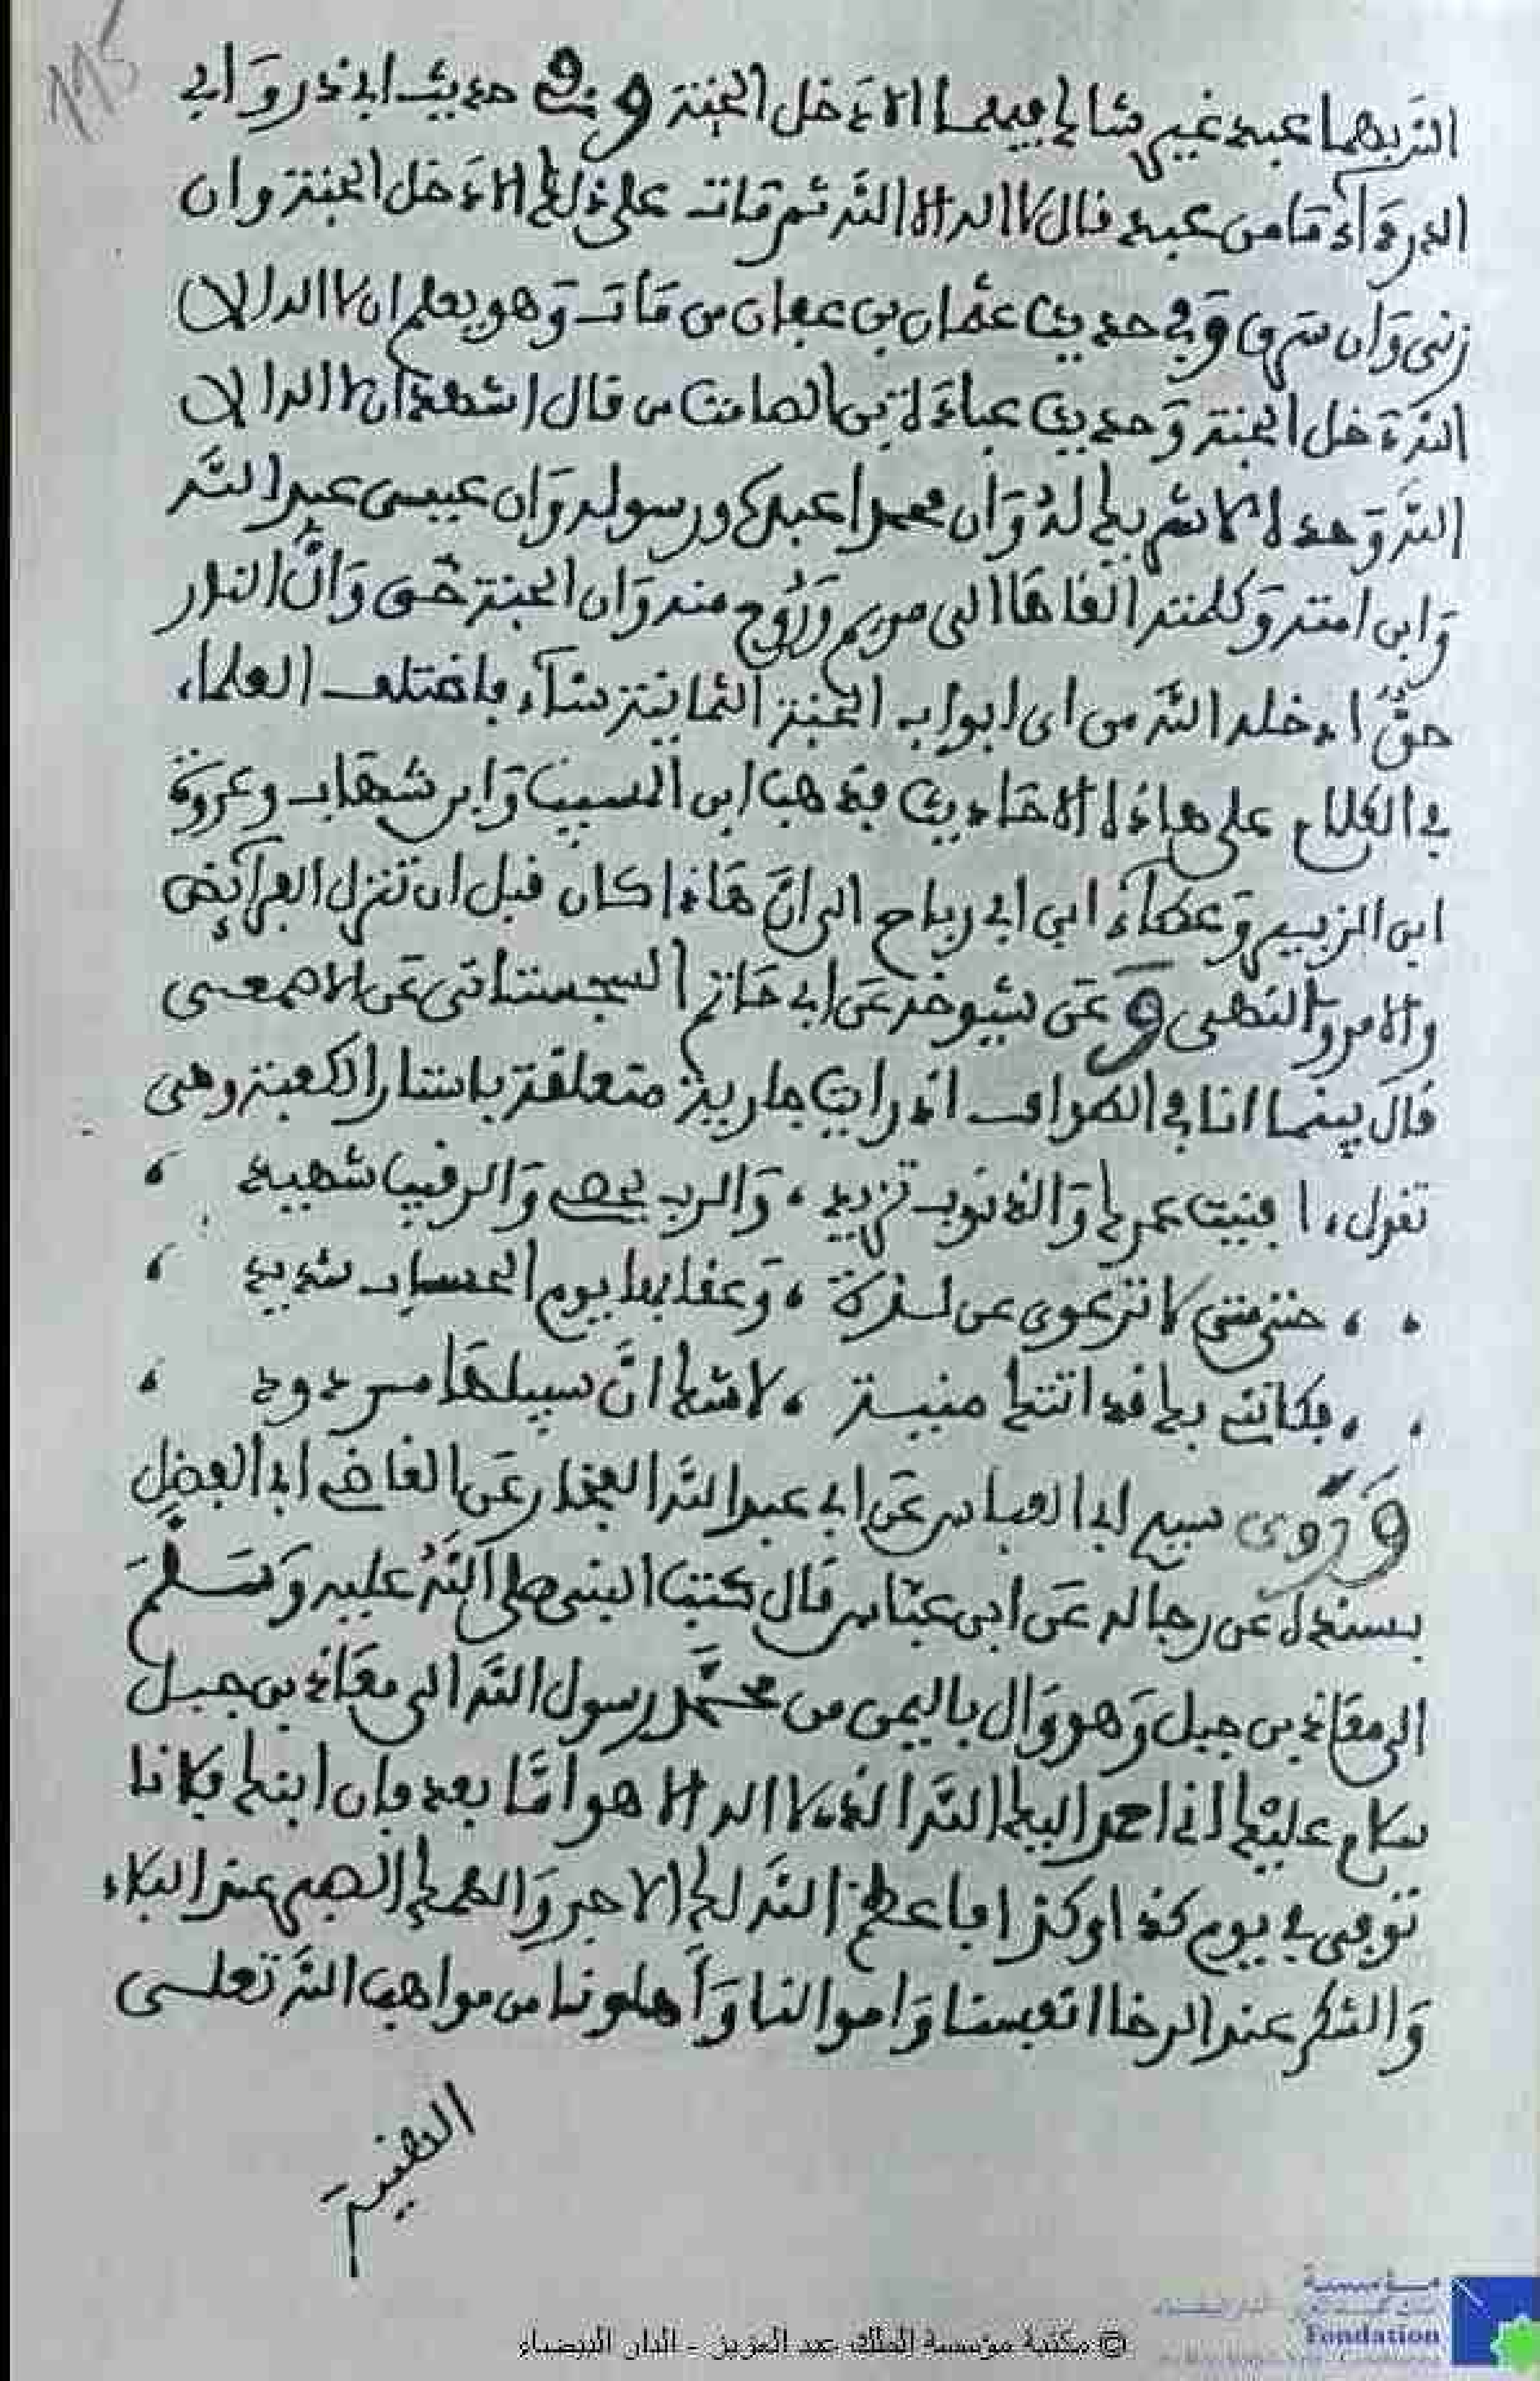 115
الله بهما عبد غير شاك فيهما الا دخل الجنة وفي حديث ابي ذر وابي
الدرداء ما من عبد قال لا اله الا الله ثم مات على ذلك الا دخل الجنة وان
زنى وان سرق وفي حديث عثمان بن عفان من مات وهو يعلم ان لا اله الا
الله دخل الجنة وحديث عبادة بن الصامت من قال اشهد ان لا اله الا
الله وحده لا شريك له وان محمدا عبده ورسوله وان عيسى عبد الله
وابن امته وكلمته القاها الى مريم وروح منه وان الجنة حق وان النار
حق ادخله الله من اي ابواب الجنة الثمانية شاء فاختلف العلماء
في الكلام على هاذه الاحاديث فذهب ابن المسيب وابن شهاب وعروة
ابن الزبير وعطاء ابن ابي رباح الى ان هاذا كان قبل ان تنزل الفرائض
والامر والنهي وعن شيوخه عن ابي حاتم السجستاني عن الاصمعي
قال بينما انا في الطواف اذ رايت جارية متعلقة باستار الكعبة وهي
تقول، افنيت عمرك والذنوب تزيد، والرب يحصي والرقيب شهيد،
، حتى متى لا ترعوي عن لذة، وعقابها يوم الحساب شديد،
، فكانني بك قد اتتك منية، لا شك ان سبيلها مسدود،
وروى سيد ابي العباس عن ابي عبد الله الفخار عن القاضي ابي الفضل
بسنده عن رجاله عن ابن عباس قال كتب النبي صلى الله عليه وسلم
الى معاذ بن جبل وهو وال باليمن من محمد رسول الله الى معاذ بن جبل
سلام عليك اني احمد اليك الله الذي لا اله الا هو اما بعد فان ابنك فلانا
توفي في يوم كذا وكذا فاعظم الله لك الاجر والهمك الصبر عند البلاء
والشكر عند الرخا انفسنا واموالنا واهلونا من مواهب الله تعلى
الهنية
© مكتبة مؤسسة الملك عبد العزيز - الدار البيضاء
مؤسسة
Fondation